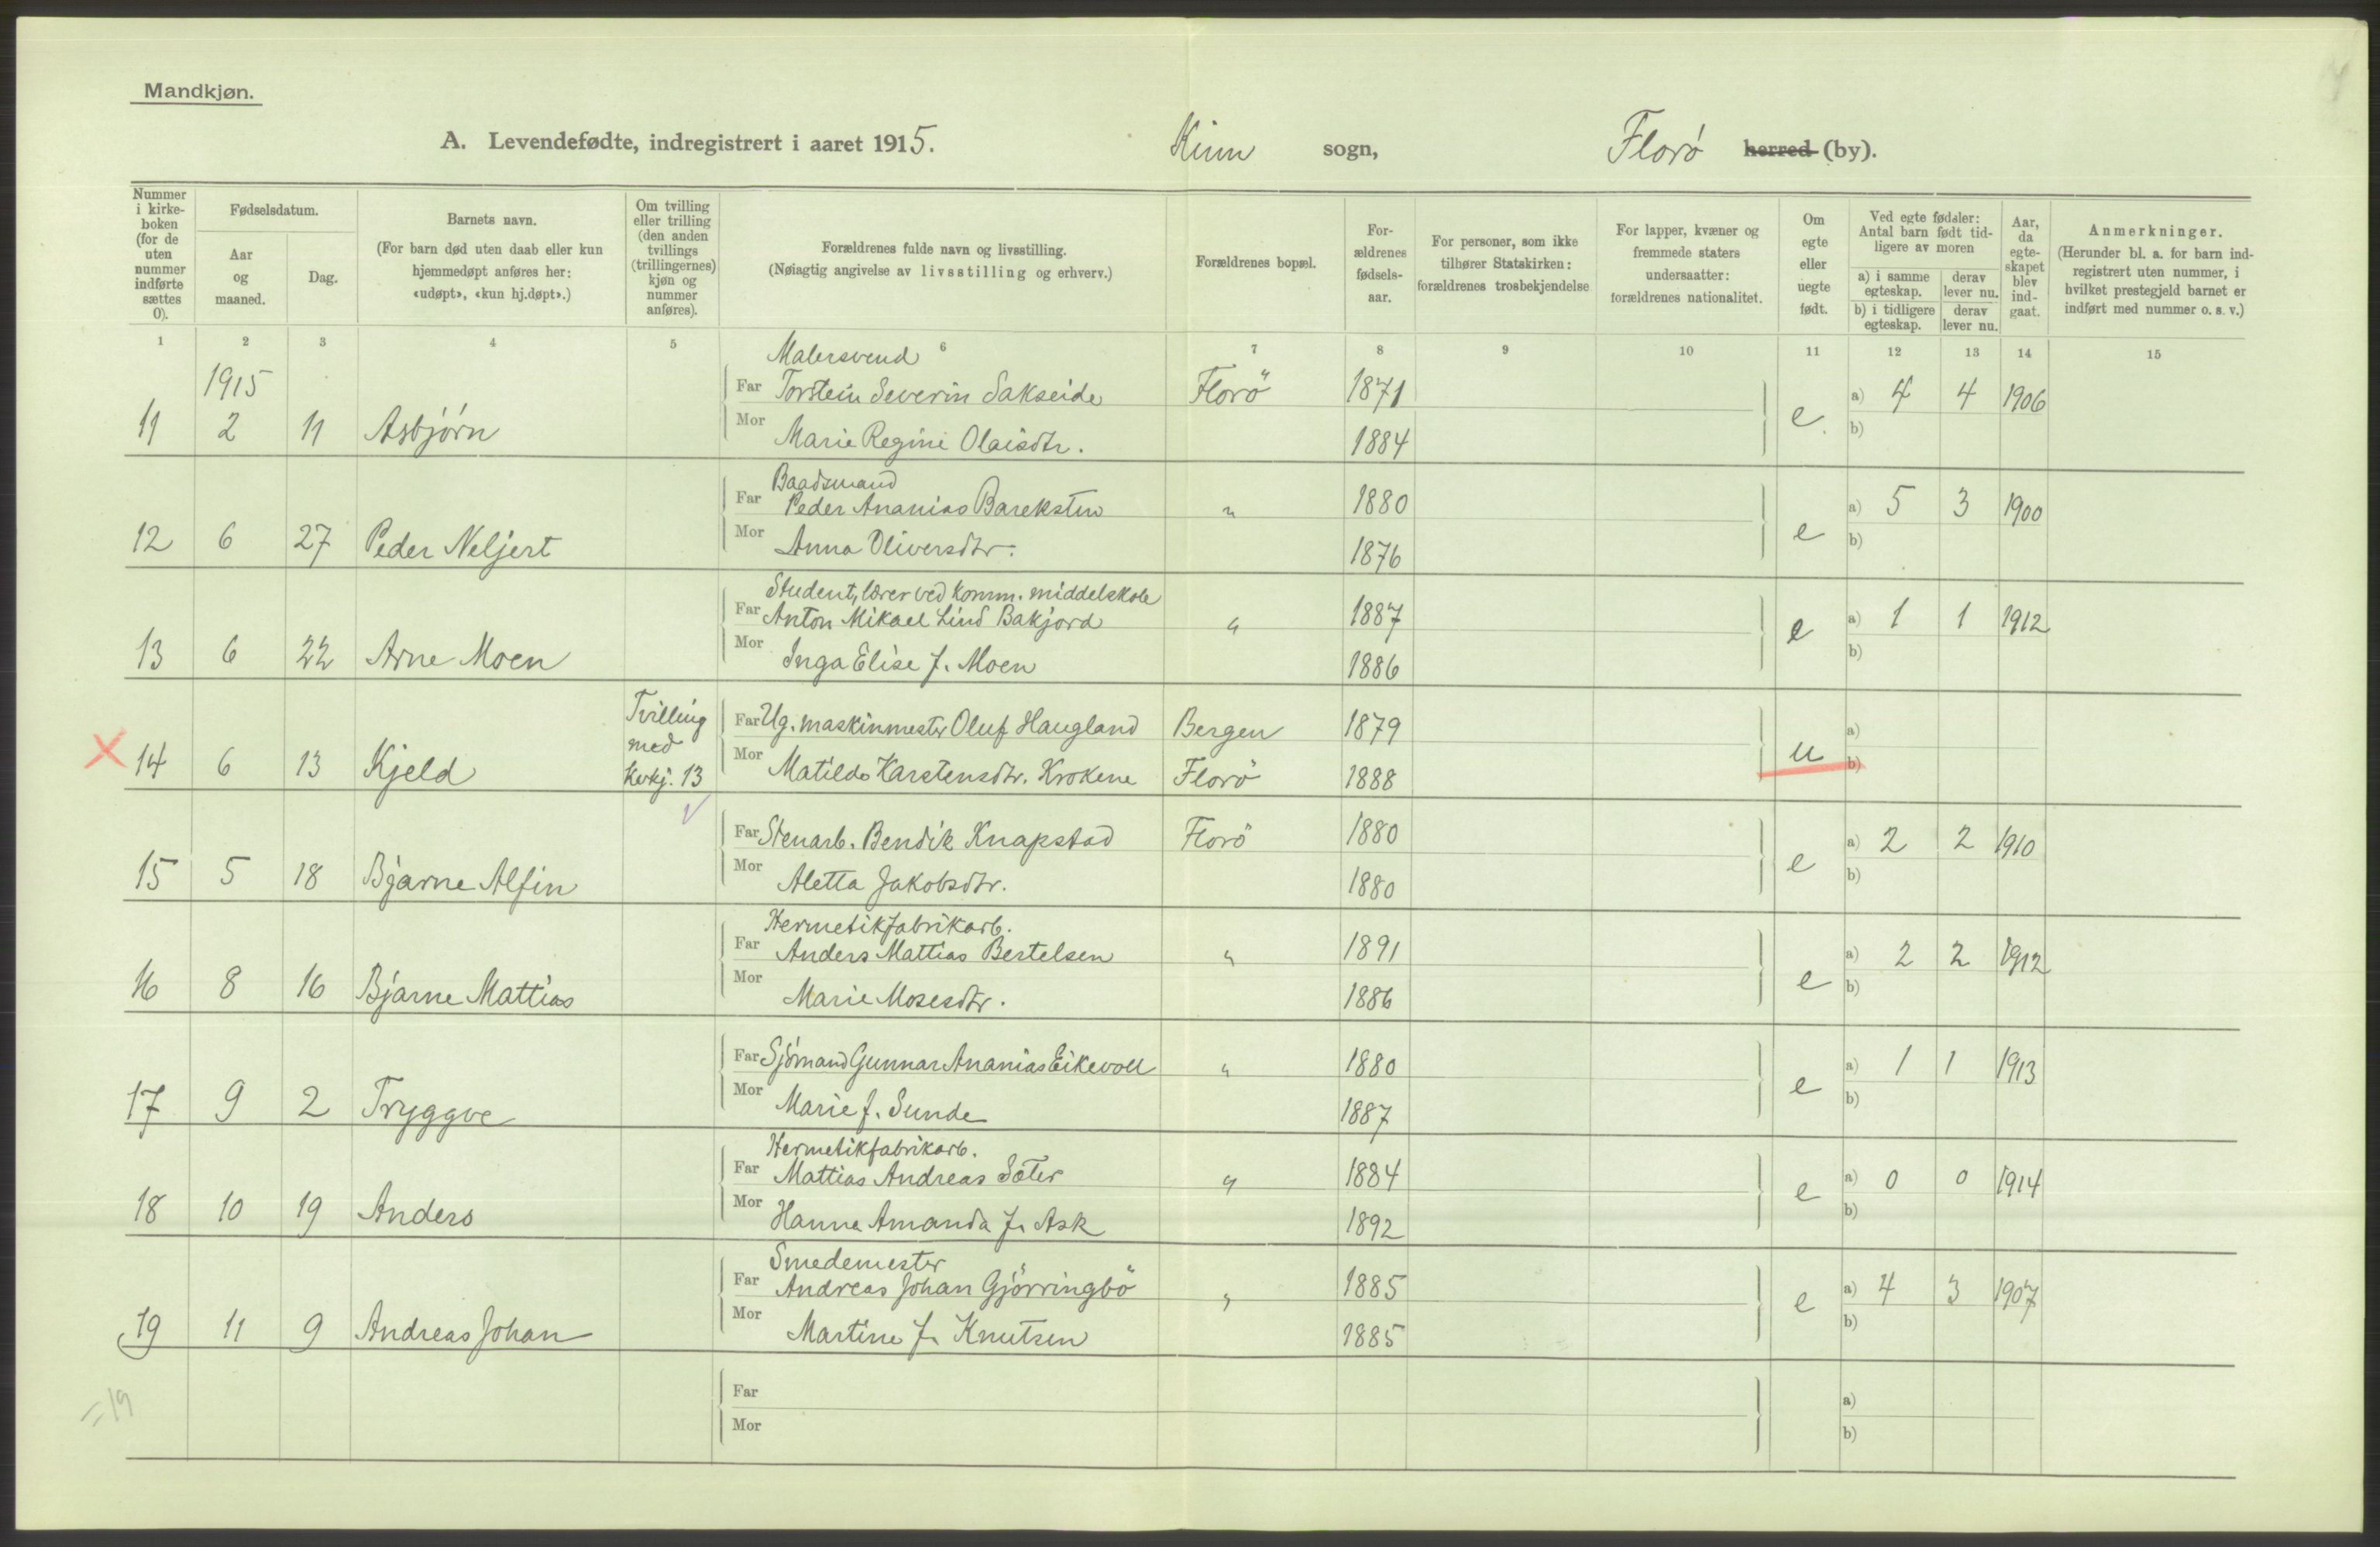 Mandkjøn.
A. Levendefødte, indregistrert i aaret 1915. Kinn sogn, Florø herred (by).
Nummer i kirkeboken (for de uten nummer indførte sættes 0).
Fødselsdatum.
Aar og maaned.
Dag.
Barnets navn.
(For barn død uten daab eller kun hjemmedøpt anføres her: «udøpt», «kun hj.døpt».)
Om tvilling eller trilling (den anden tvillings (trillingernes) kjøn og nummer anføres).
Forældrenes fulde navn og livsstilling.
(Nøiagtig angivelse av livsstilling og erhverv.)
Forældrenes bopæl.
For-ældrenes fødsels-aar.
For personer, som ikke tilhører Statskirken: forældrenes trosbekjendelse
For lapper, kvæner og fremmede staters undersaatter: forældrenes nationalitet.
Om egte eller uegte født.
Ved egte fødsler: Antal barn født tid-ligere av moren
a) i samme egteskap. derav lever nu.
b) i tidligere egteskap. derav lever nu.
Aar, da egte-skapet blev ind-gaat.
Anmerkninger.
(Herunder bl. a. for barn ind-registrert uten nummer, i hvilket prestegjeld barnet er indført med nummer o. s. v.)
1 2 3 4 5 6 7 8 9 10 11 12 13 14 15
1915
Malersvend
Far Torstein Severin Sakseide Florö 1871 a) 4 4 1906
11 2 11 Asbjørn Mor Marie Regine Olaisdtr. 1884 e. b)
Baadsmand
Far Peder Ananias Bareksten " 1880 a) 5 3 1900
12 6 27 Peder Neljert Mor Anna Oliversdtr. 1876 e b)
Student, lærer ved komm. middelskole
Far Anton Mikael Lind Bakjord " 1887 a) 1 1 1912
13 6 22 Arne Moen Mor Inga Elise f. Moen 1886 e b)
Tvilling med Kvkj. 13
Far Ug. maskinmester Oluf Haugland Bergen 1879 a)
X 14 6 13 Kjeld Mor Matilde Karstensdtr. Krokene Florö 1888 u b)
Far Stenarb. Bendik Knapstad Florö 1880 a) 2 2 1910
15 5 18 Bjarne Alfin Mor Aletta Jakobsdtr. 1880 e b)
Hermetikfabrikarb.
Far Anders Mattias Bertelsen " 1891 a) 2 2 1912
16 8 16 Bjarne Mattias Mor Marie Mosesdtr. 1886 e b)
Far Sjömand Gunnar Ananias Eikevoll " 1880 a) 1 1 1913
17 9 2 Tryggve Mor Marie f. Sunde 1887 e b)
Hermetikfabrikarb.
Far Mattias Andreas Sæter " 1884 a) 0 0 1914
18 10 19 Anders Mor Hanna Amanda f. Ask 1892 e b)
Smedemester
Far Andreas Johan Gjörringbö " 1885 a) 4 3 1907
19 11 9 Andreas Johan Mor Martine f. Knutsen 1885 e b)
=19
Far a)
Mor b)